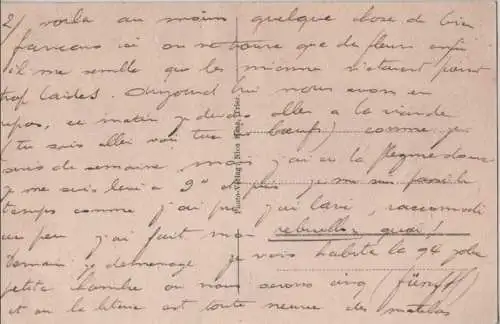 2/ voila au moins quelque chose de bien
français ici on ne trouve que des fleurs enfin
il me semble que les miennes n'étaient point
trop laides. Aujourd'hui nous avons eu
repos, ce matin je devais aller a la viande
(tu sais aller voir tuer les bœufs) comme je
suis de semaine, mais j'ai eu la flegme donc
je me suis levé a 9h et puis je me suis passé le
temps comme j'ai pu, j'ai lavé, raccommodé
un peu j'ai fait ma rebuelle, quoi!
Demain je déménage je vais habiter la 94 jolie
petite chambre ou nous serons cinq (fünf)
et ou la literie est toute neuve des matelas
Photo-Verlag Nico Trier